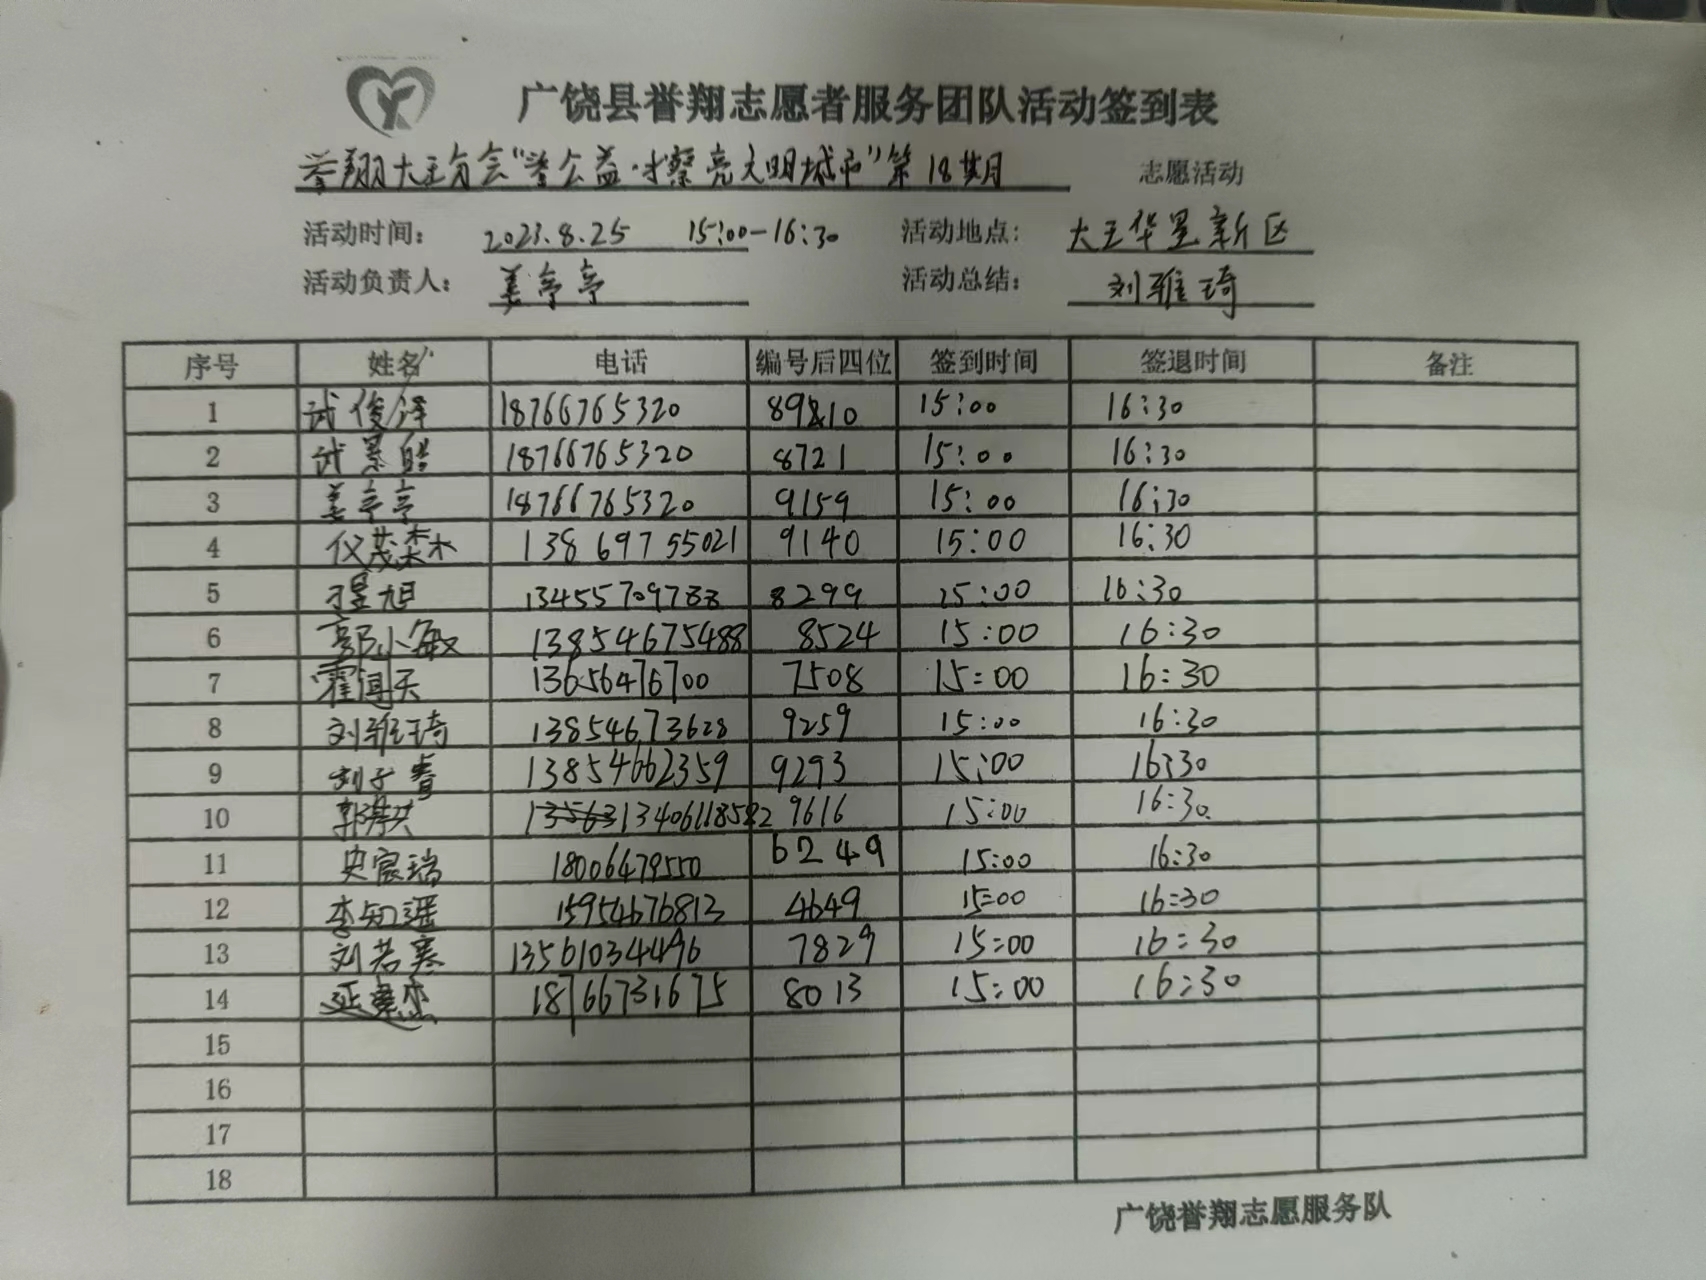 广饶县誉翔志愿者服务团队活动签到表
誉翔大王分会“誉公益·擦亮文明城市”第18期 志愿活动
活动时间： 2023.8.25 15:00-16:30 活动地点： 大王华星新区
活动负责人： 姜亭亭 活动总结： 刘雅琦
序号 姓名 电话 编号后四位 签到时间 签退时间 备注
1 武俊泽 18766765320 8910 15:00 16:30
2 武景皓 18766765320 8721 15:00 16:30
3 姜亭亭 18766765320 9159 15:00 16:30
4 仪茂森 13869755021 9140 15:00 16:30
5 旭 13455709788 8299 15:00 16:30
6 郭小敏 13854675488 8524 15:00 16:30
7 霍闻天 13656476700 7508 15:00 16:30
8 刘雅琦 13854673628 9259 15:00 16:30
9 刘子睿 13854662359 9293 15:00 16:30
10 郭 13406118582 9616 15:00 16:30
11 史宸瑞 18006479550 6249 15:00 16:30
12 李知遥 15954676813 4649 15:00 16:30
13 刘若寒 13561034496 7829 15:00 16:30
14 延 18766731675 8013 15:00 16:30
15
16
17
18
广饶誉翔志愿服务队